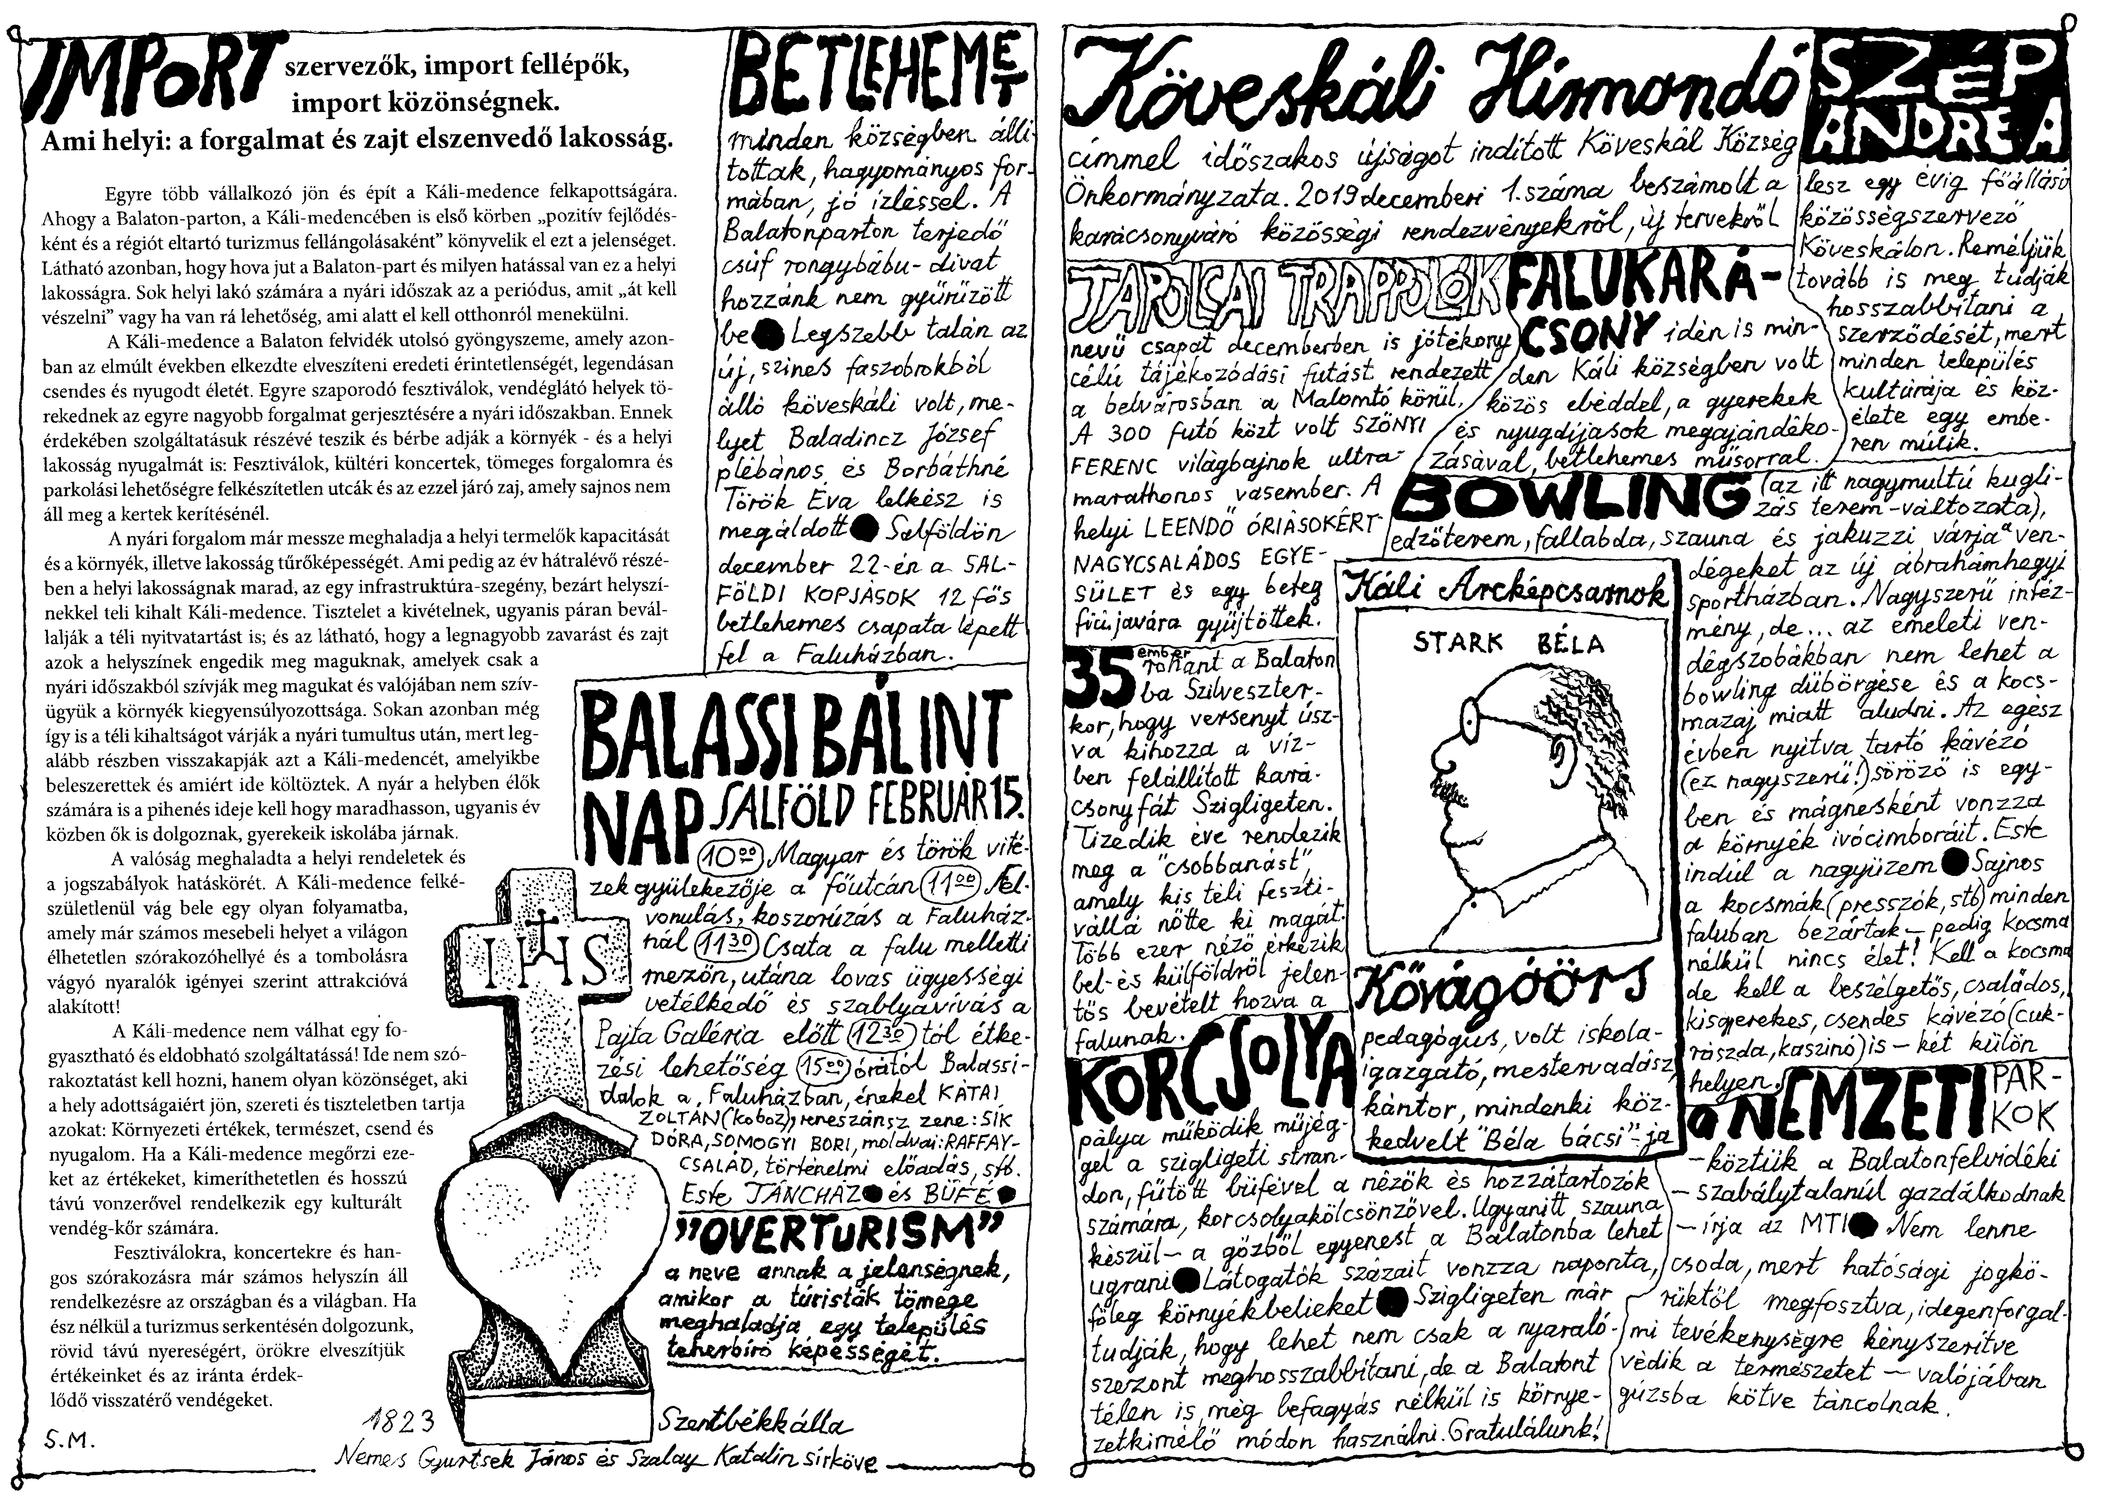 IMPORT szervezők, import fellépők,
import közönségnek.
Ami helyi: a forgalmat és zajt elszenvedő lakosság.
Egyre több vállalkozó jön és épít a Káli-medence felkapottságára.
Ahogy a Balaton-parton, a Káli-medencében is első körben „pozitív fejlődés-
ként és a régiót eltartó turizmus fellángolásaként” könyvelik el ezt a jelenséget.
Látható azonban, hogy hova jut a Balaton-part és milyen hatással van ez a helyi
lakosságra. Sok helyi lakó számára a nyári időszak az a periódus, amit „át kell
vészelni” vagy ha van rá lehetőség, ami alatt el kell otthonról menekülni.
A Káli-medence a Balaton felvidék utolsó gyöngyszeme, amely azon-
ban az elmúlt években elkezdte elveszíteni eredeti érintetlenségét, legendásan
csendes és nyugodt életét. Egyre szaporodó fesztiválok, vendéglátó helyek tö-
rekednek az egyre nagyobb forgalmat gerjesztésére a nyári időszakban. Ennek
érdekében szolgáltatásuk részévé teszik és bérbe adják a környék - és a helyi
lakosság nyugalmát is: Fesztiválok, kültéri koncertek, tömeges forgalomra és
parkolási lehetőségre felkészítetlen utcák és az ezzel járó zaj, amely sajnos nem
áll meg a kertek kerítésénél.
A nyári forgalom már messze meghaladja a helyi termelők kapacitását
és a környék, illetve lakosság tűrőképességét. Ami pedig az év hátralévő részé-
ben a helyi lakosságnak marad, az egy infrastruktúra-szegény, bezárt helyszí-
nekkel teli kihalt Káli-medence. Tisztelet a kivételnek, ugyanis páran bevál-
lalják a téli nyitvatartást is; és az látható, hogy a legnagyobb zavarást és zajt
azok a helyszínek engedik meg maguknak, amelyek csak a
nyári időszakból szívják meg magukat és valójában nem szív-
ügyük a környék kiegyensúlyozottsága. Sokan azonban még
így is a téli kihaltságot várják a nyári tumultus után, mert leg-
alább részben visszakapják azt a Káli-medencét, amelyikbe
beleszerettek és amiért ide költöztek. A nyár a helyben élők
számára is a pihenés ideje kell hogy maradhasson, ugyanis év
közben ők is dolgoznak, gyerekeik iskolába járnak.
A valóság meghaladta a helyi rendeletek és
a jogszabályok hatáskörét. A Káli-medence felké-
születlenül vág bele egy olyan folyamatba,
amely már számos mesebeli helyet a világon
élhetetlen szórakozóhellyé és a tombolásra
vágyó nyaralók igényei szerint attrakcióvá
alakított!
A Káli-medence nem válhat egy fo-
gyasztható és eldobható szolgáltatássá! Ide nem szó-
rakoztatást kell hozni, hanem olyan közönséget, aki
a hely adottságaiért jön, szereti és tiszteletben tartja
azokat: Környezeti értékek, természet, csend és
nyugalom. Ha a Káli-medence megőrzi eze-
ket az értékeket, kimeríthetetlen és hosszú
távú vonzerővel rendelkezik egy kulturált
vendég-kőr számára.
Fesztiválokra, koncertekre és han-
gos szórakozásra már számos helyszín áll
rendelkezésre az országban és a világban. Ha
ész nélkül a turizmus serkentésén dolgozunk,
rövid távú nyereségért, örökre elveszítjük
értékeinket és az iránta érdek-
lődő visszatérő vendégeket.
S.M.
BETLEHEMET
minden községben álli-
tottak, hagyományos for-
mában, jó ízléssel. A
Balatonparton terjedő
csúf rongybábu-divat
hozzánk nem gyűrűzött
be ● Legszebb talán az
új, színes faszobrokból
álló köveskáli volt, me-
lyet Baladincz József
plébános és Borbáthné
Török Éva lelkész is
megáldott ● Salföldön
december 22-én a SAL-
FÖLDI KOPJÁSOK 12 fős
betlehemes csapata lépett
fel a Faluházban.
BALASSI BÁLINT
NAP SALFÖLD FEBRUÁR 15.
10⁰⁰ Magyar és török vité-
zek gyülekezője a főutcán 11⁰⁰ Fel-
vonulás, koszorúzás a Faluház-
nál 11³⁰ Csata a falu melletti
mezőn, utána lovas ügyességi
vetélkedő és szablyavívás a
Pajta Galéria előtt 12³⁰ tól étke-
zési lehetőség 15⁰⁰ órától Balassi-
dalok a Faluházban, énekel KÁTAI
ZOLTÁN (koboz), reneszánsz zene: SIK
DÓRA, SOMOGYI BORI, moldvai: RAFFAY-
CSALÁD, történelmi előadás, stb.
Este TÁNCHÁZ ● és BÜFÉ ●
IHS
”OVERTURISM”
a neve annak a jelenségnek,
amikor a turisták tömege
meghaladja egy település
teherbíró képességét.
1823 Szentbékkálla
Nemes Gyurtsek János és Szalay Katalin sírköve
Köveskáli Hírmondó
címmel időszakos újságot indított Köveskál Község
Önkormányzata. 2019 decemberi 1. száma beszámolt a
karácsonyváró közösségi rendezvényekről, új tervekről
SZÉP
ANDREA
lesz egy évig főállású
közösségszervező
Köveskálon. Reméljük
tovább is meg tudják
hosszabbítani a
szerződését, mert
minden település
kultúrája és köz-
élete egy embe-
ren múlik.
TAPOLCAI TRAPPOLÓK
nevű csapat decemberben is jótékony
célú tájékozódási futást rendezett
a belvárosban a Malomtó körül.
A 300 futó közt volt SZŐNYI
FERENC világbajnok ultra-
marathonos vasember. A
helyi LEENDŐ ÓRIÁSOKÉRT
NAGYCSALÁDOS EGYE-
SÜLET és egy beteg
fiú javára gyűjtöttek.
FALUKARÁ-
CSONY idén is min-
den Káli községben volt
közös ebéddel, a gyerekek
és nyugdíjasok megajándéko-
zásával, betlehemes műsorral.
BOWLING (az itt nagymultú kugli-
zás terem-változata),
edzőterem, fallabda, szauna és jakuzzi várja a ven-
dégeket az új ábrahámhegyi
sportházban. Nagyszerű intéz-
mény, de... az emeleti ven-
dégszobákban nem lehet a
bowling dübörgése és a kocs-
mazaj miatt aludni. Az egész
évben nyitva tartó kávézó
(ez nagyszerű!) söröző is egy-
ben és mágnesként vonzza
a környék ivócimboráit. Este
indul a nagyüzem ● Sajnos
a kocsmák (presszók, stb) minden
faluban bezártak – pedig Kocsma
nélkül nincs élet! Kell a kocsma
de kell a beszélgetős, családos,
kisgyerekes, csendes kávézó (cuk-
rászda, kaszinó) is – két külön
helyen.
35 ember rohant a Balaton
ba Szilveszter-
kor, hogy versenyt úsz-
va kihozza a víz-
ben felállított kará-
csonyfát Szigligeten.
Tizedik éve rendezik
meg a "csobbanást",
amely kis téli feszti-
vállá nőtte ki magát.
Több ezer néző érkezik
bel- és külföldről jelen-
tős bevételt hozva a
falunak.
Káli Arcképcsarnok
STARK BÉLA
Kővágóörs
pedagógus, volt iskola-
igazgató, mestervadász
kántor, mindenki köz-
kedvelt "Béla bácsi"-ja
KORCSOLYA
pálya működik műjég-
gel a szigligeti stran-
don, fűtött büfével a nézők és hozzátartozók
számára, korcsolyakölcsönzővel. Ugyanitt szauna
készül – a gőzből egyenest a Balatonba lehet
ugrani ● Látogatók százait vonzza naponta,
főleg környékbelieket ● Szigligeten már
tudják, hogy lehet nem csak a nyaraló-
szezont meghosszabbítani, de a Balatont
télen is, még befagyás nélkül is környe-
zetkímélő módon használni. Gratulálunk!
a NEMZETI PAR-
KOK
– köztük a Balatonfelvidéki
– szabálytalanúl gazdálkodnak
– írja az MTI ● Nem lenne
csoda, mert hatósági jogkö-
rüktől megfosztva, idegenforgal-
mi tevékenységre kényszerítve
védik a természetet – valójában
gúzsba kötve táncolnak.